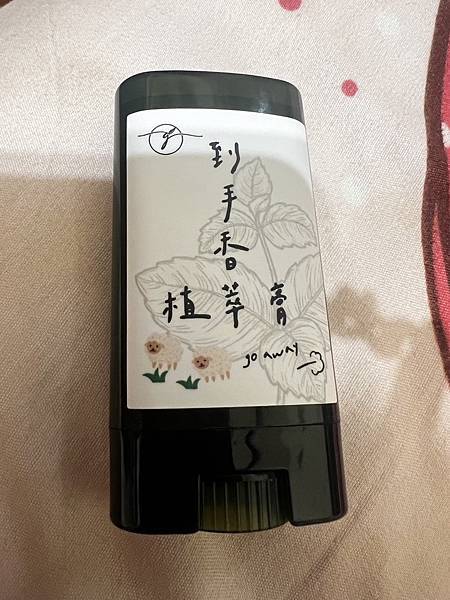 到手香
植萃膏
go away